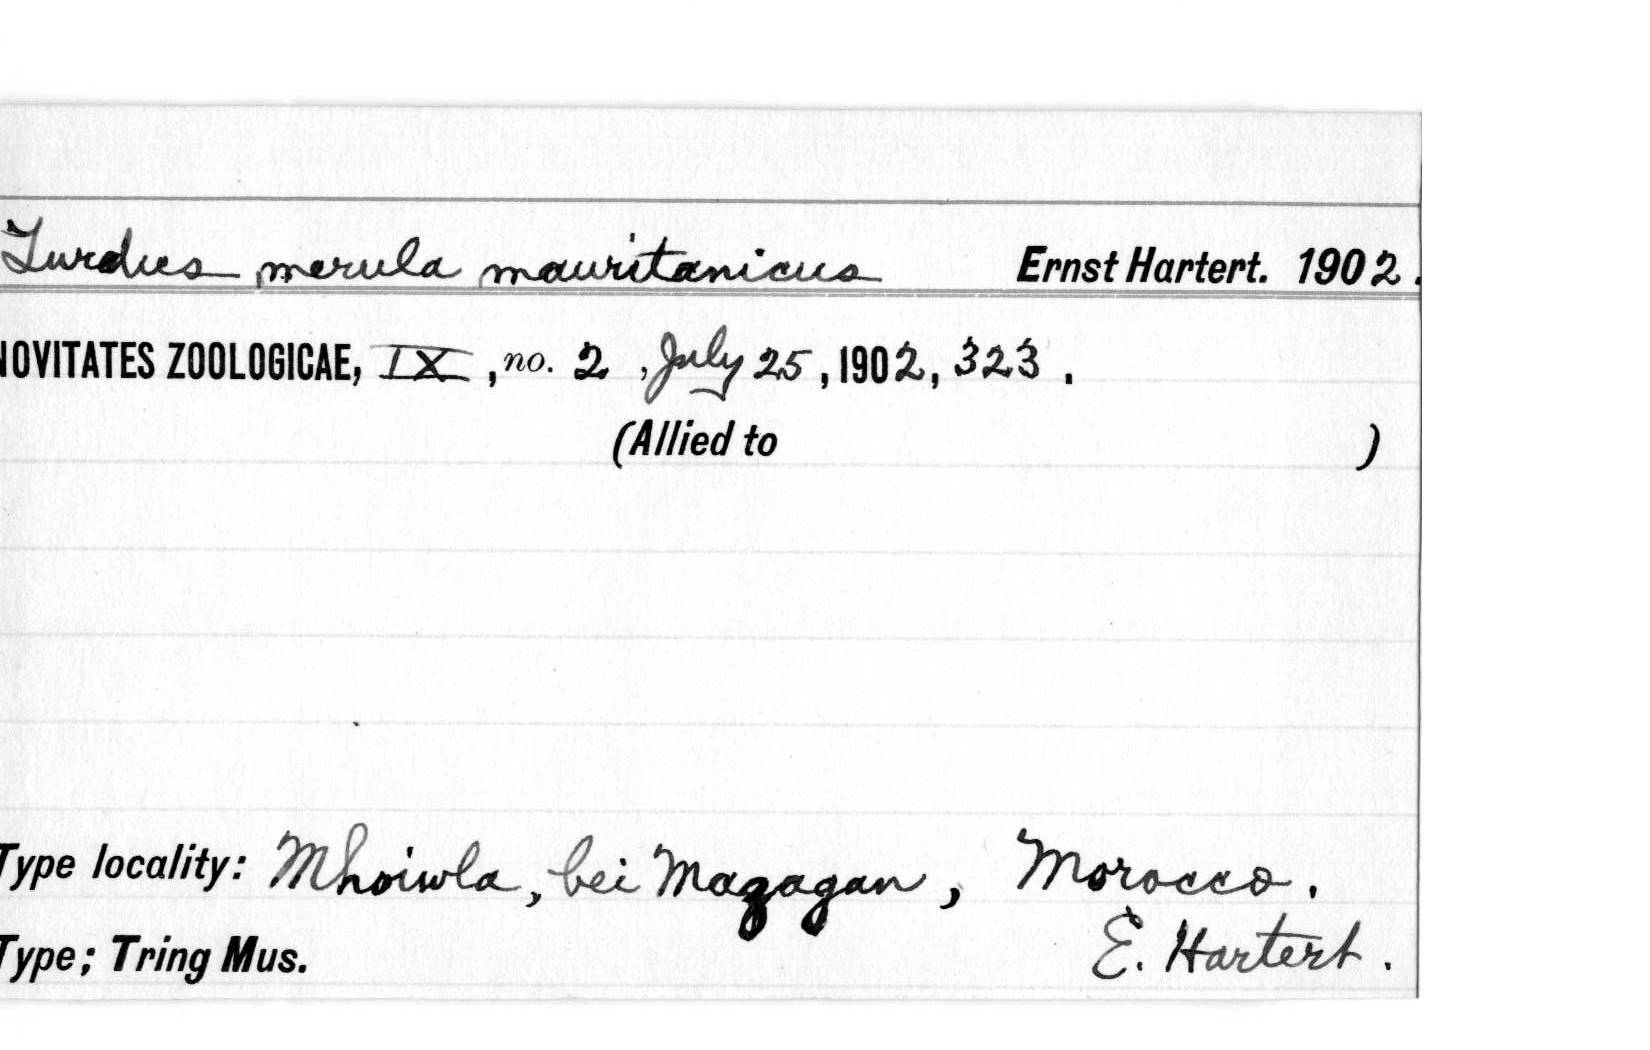 Turdus merula mauritanicus Ernst Hartert. 1902.
NOVITATES ZOOLOGICAE, IX, no. 2, July 25, 1902, 323.
(Allied to )
Type locality: Mhoiwla, bei Mazagan, Morocco.
Type; Tring Mus. E. Hartert.